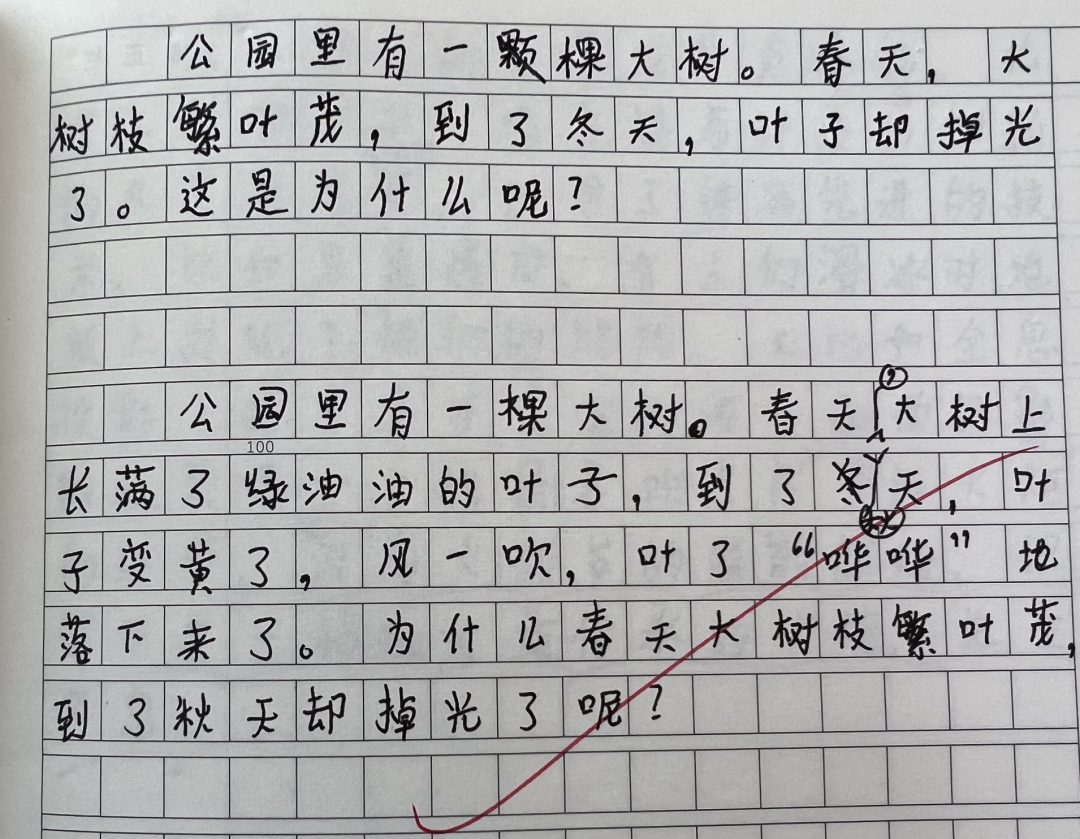 公园里有一颗棵大树。春天，大
树枝繁叶茂，到了冬天，叶子却掉光
了。这是为什么呢？
，
公园里有一棵大树。春天大树上
100
长满了绿油油的叶子，到了冬天，叶
秋
子变黄了，风一吹，叶了“哗哗”地
落下来了。为什么春天大树枝繁叶茂，
到了秋天却掉光了呢？